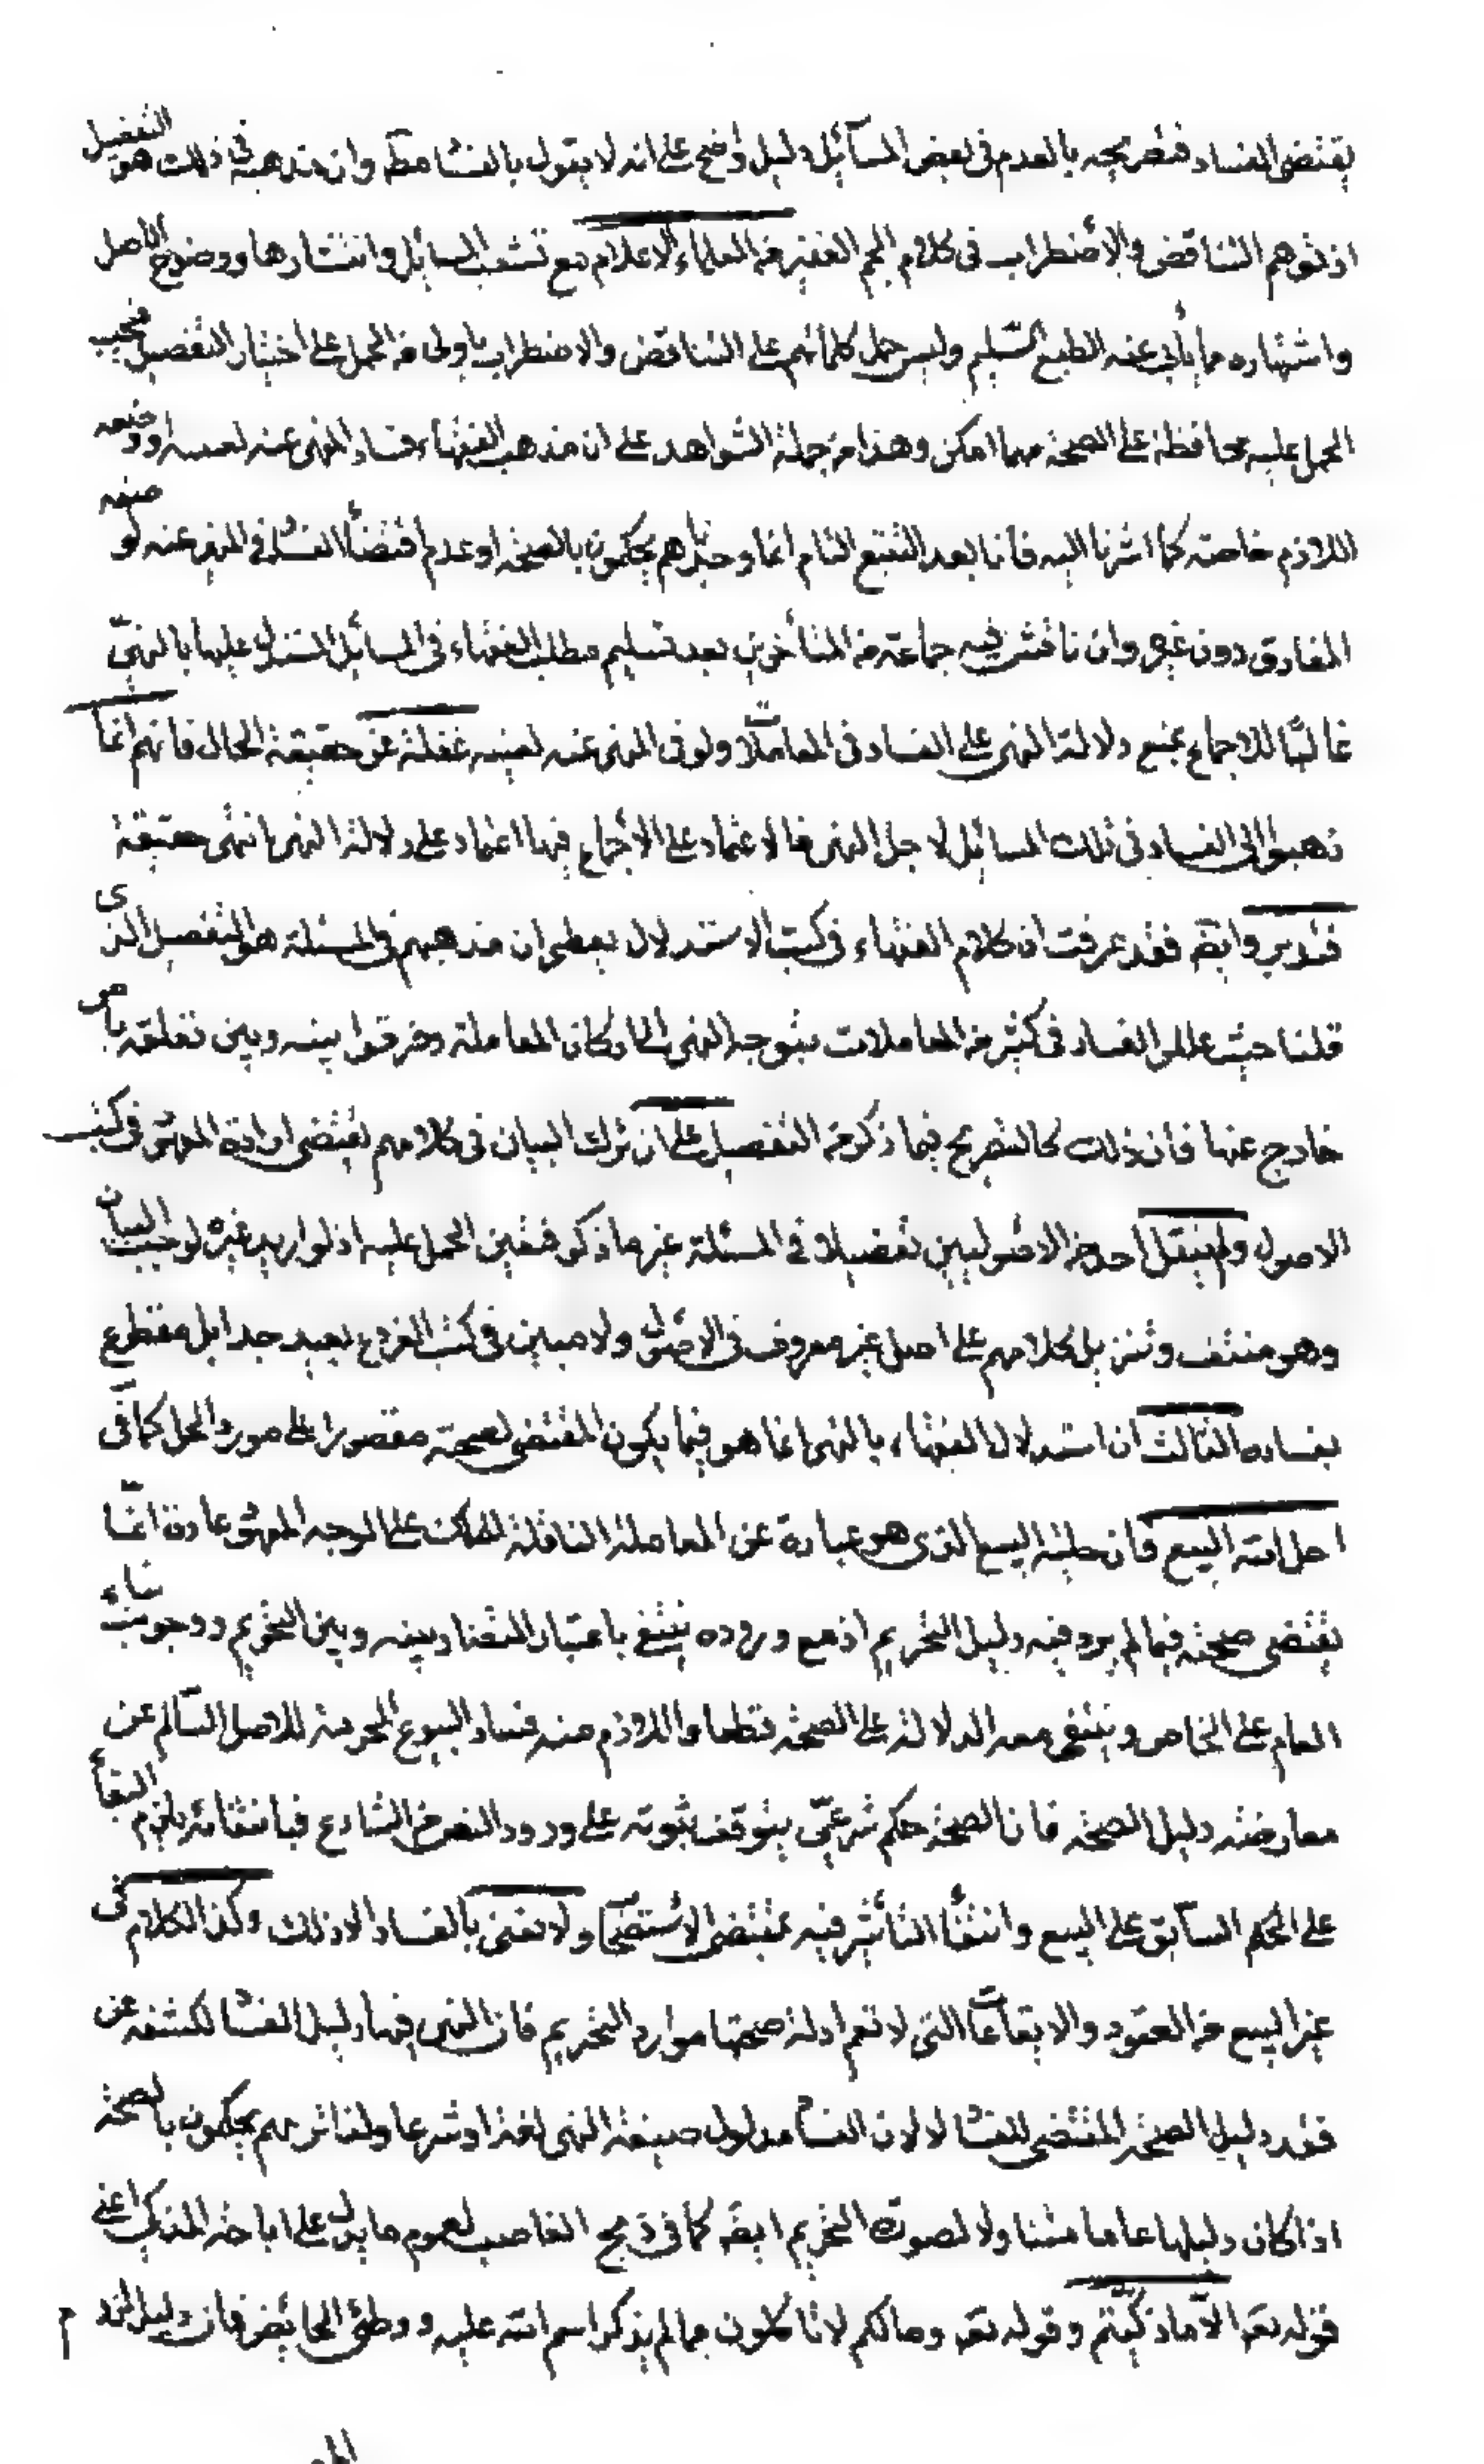 يقتضى الفساد فتصريحه بالعدم فى بعض المسآئل دليل واضح على انه لا يقول بالفسٰا مطٓ وان مذهبه فى ذلك هو التفصيل
اذ توهم التناقض والإضطراب فى كلام الجم الغفير من العلماء الاعلام مع تشعب المسائل وانتشارها ووضوح الاصل
واشتهاره مما يأبى عنه الطبع السّليم وليس حمل كلماتهم على التناقض والاضطراب باولى من الحمل على اختيار التفصيل فيجب
الحمل عليه محافظة على الصحة مهما امكن وهذا من جملة الشواهد على ان مذهب الفقهاء فساد المنهى عنه لعينه او وصفه
اللازم خاصة كما اشرنا اليه فانا بعد التتبع التام انما وجدناهم يحكمون بالصحة او عدم اقتضأ الفسٰا فى المنهى عنه لوصفه
المفارق دون غيره وان ناقش فيه جماعة من المتأخرين بعد تسليم مطلب الفقهاء فى المسائل المستدل عليها بالنهىّ
غالبًا للاجماع بمنع دلالة النهى على الفساد فى المعاملاتٓ ولو فى المنهى عنه لعينه غفلة عن حقيقة الحال فانهم انما
ذهبوا الى الفساد فى تلك المسائل لاجل النهى فالاعتماد على الأجماع فيها اعتماد على دلالة النهى انتهى حقيقة
فتدبر وايضٓ فقد عرفت ان كلام الفقهاء فى كتب الاستدلال يعطى ان مذهبهم فى المسئلة هو التفصيل الذى
قلنا حيث عللو الفساد فى كثير من المعاملات بتوجه النهى الى اركان المعاملة وفرقوا بينه وبين تعلقه بامر
خارج عنها فان ذلك كالتصريح فيما ذكر من التفصيل على ان ترك البيان فى كلامهم يقتضى ارادة المهىّ فى كتب
الاصول ولم ينقل احد من الاصوليين تفصيلا فى المسئلة غير ما ذكر فتعين الحمل عليه اذ لو اريد غيره لوجب البيان
وهو منتف وتنزيل كلامهم على اصل غير معروف فى الاصول ولا مبين فى كتب الفروع بعيد جدا بل مقطوع
بفساده الثالث ان استدلال الفقهاء بالنهى انما هو فيما يكون المقتضى لصحته مقصورا على مورد الحل كما فٓى
احل الله البيع فان حلية البيع الذى هو عبارة عن المعاملة الناقلة للملك على الوجه المهىّ عادة انّما
يقتضى صحته فيما لم يرد فيه دليل التحريم اذ مع وروده ينتفى باعتبار التضاد بينه وبين التحريم ووجوب بناء
العام على الخاص وينتفى معه الدلالة على الصحة قطعا واللازم منه فساد البيوع المحرمة للاصل السّالم عن
معارضة دليل الصحة فان الصحة حكم شرعىّ يتوقف ثبوته على ورود النص من الشارع فبانتفائه يلزم البقأ
على الحكم السّابق على البيع وانتفأ التأثير فيه بمقتضى الاستصحٓا ولا نعنى بالفساد الا ذلك وكذا الكلام فى
غير البيع من العقود والايقاعاتٓ التى لا تعم ادلة صحتها موارد التحريم فان النهى فيها دليل الفسٰا لكشفه عن
فقد دليل الصحة المقتضى للفسٰا لا لان الفسٰا مدلول صيغة النهى لغة او شرعا ولذا تريهم يحكمون بالصحة
اذا كان دليلها عاما متناولا لصورة التحريم ايضٓ كما فى ذبح الغاصب لعموم ما يدل على اباحة المذكى اعنى
قوله تعٓ الّا ما ذكّيتم وقوله تعٓ ومالكم لا تأكلون مما لم يذكر اسم الله عليه ووطئ الحائض فان دليل لزوم
المهر